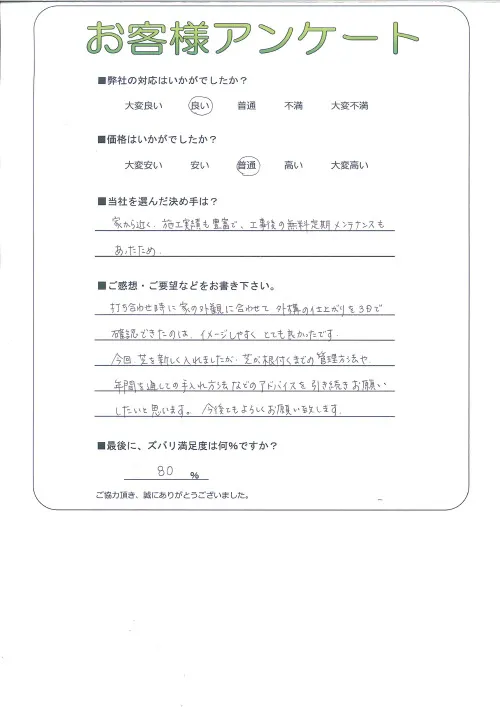 お客様アンケート
■弊社の対応はいかがでしたか?
大変良い 良い 普通 不満 大変不満
■価格はいかがでしたか?
大変安い 安い 普通 高い 大変高い
■当社を選んだ決め手は?
家から近く、施工実績も豊富で、工事後の無料定期メンテナンスも
あったため。
■ご感想・ご要望などをお書き下さい。
打ち合わせ時に家の外観に合わせて外構の仕上がりを3Dで
確認できたのは、イメージしやすくとても良かったです。
今回、芝を新しく入れましたが、芝が根付くまでの管理方法や、
年間を通しての手入れ方法などのアドバイスを引き続きお願い
したいと思います。今後ともよろしくお願い致します。
■最後に、ズバリ満足度は何%ですか?
80 %
ご協力頂き、誠にありがとうございました。